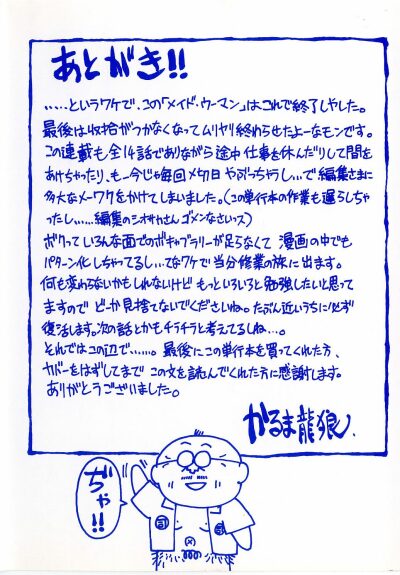 あとがき!!
‥‥‥というワケで、この「メイド・ウーマン」はこれで終了しやした。
最後は収拾がつかなくなってムリヤリ終わらせたよーなモンです。
この連載も全14話でありながら途中仕事を休んだりして間を
あけちゃったり、も一今じゃ毎回〆切日やぶっちゃうし‥‥で編集さまに
多大なメーワクをかけてしまいました。(この単行本の作業も遅らしちゃ
ったし‥‥‥編集のシオサカさんゴメンなさいッス)
ボクっていろんな面でのボキャブラリーが足らなくて 漫画の中でも
パターン化しちゃってるし‥‥てなワケで当分修業の旅に出ます。
何も変わらないかもしれないけど もっといろいろと勉強したいと思って
ますので どーか見捨てないでくださいね。たぶん近いうちに必ず
復活します。次の話とかもチラチラと考えてるしね‥‥。
それではこの辺で‥‥‥。最後にこの単行本を買ってくれた方、
カバーをはずしてまで この文を読んでくれた方に感謝します。
ありがとうございました。
かるま龍狼.
ぢゃ!!